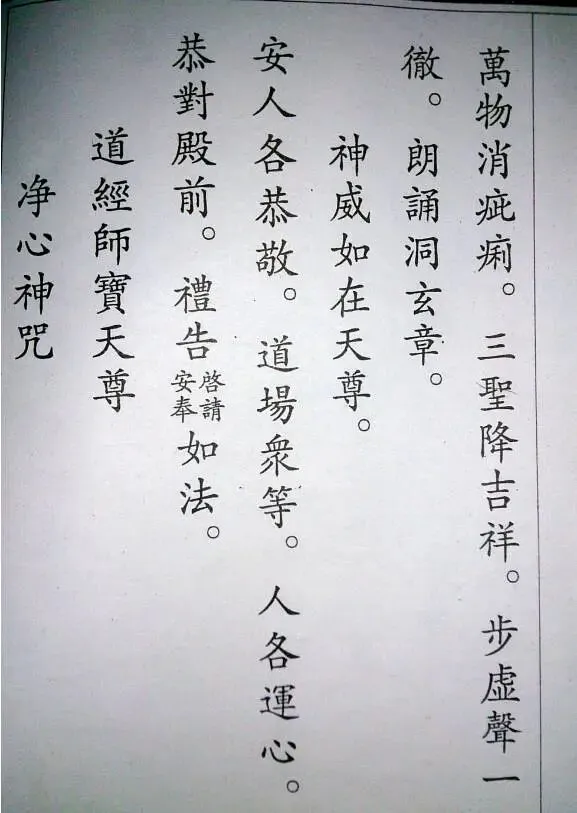 萬物消疵痢。三聖降吉祥。步虛聲一
徹。朗誦洞玄章。
神威如在天尊。
安人各恭敬。道場衆等。人各運心。
恭對殿前。禮告啓請安奉如法。
道經師寶天尊
净心神咒